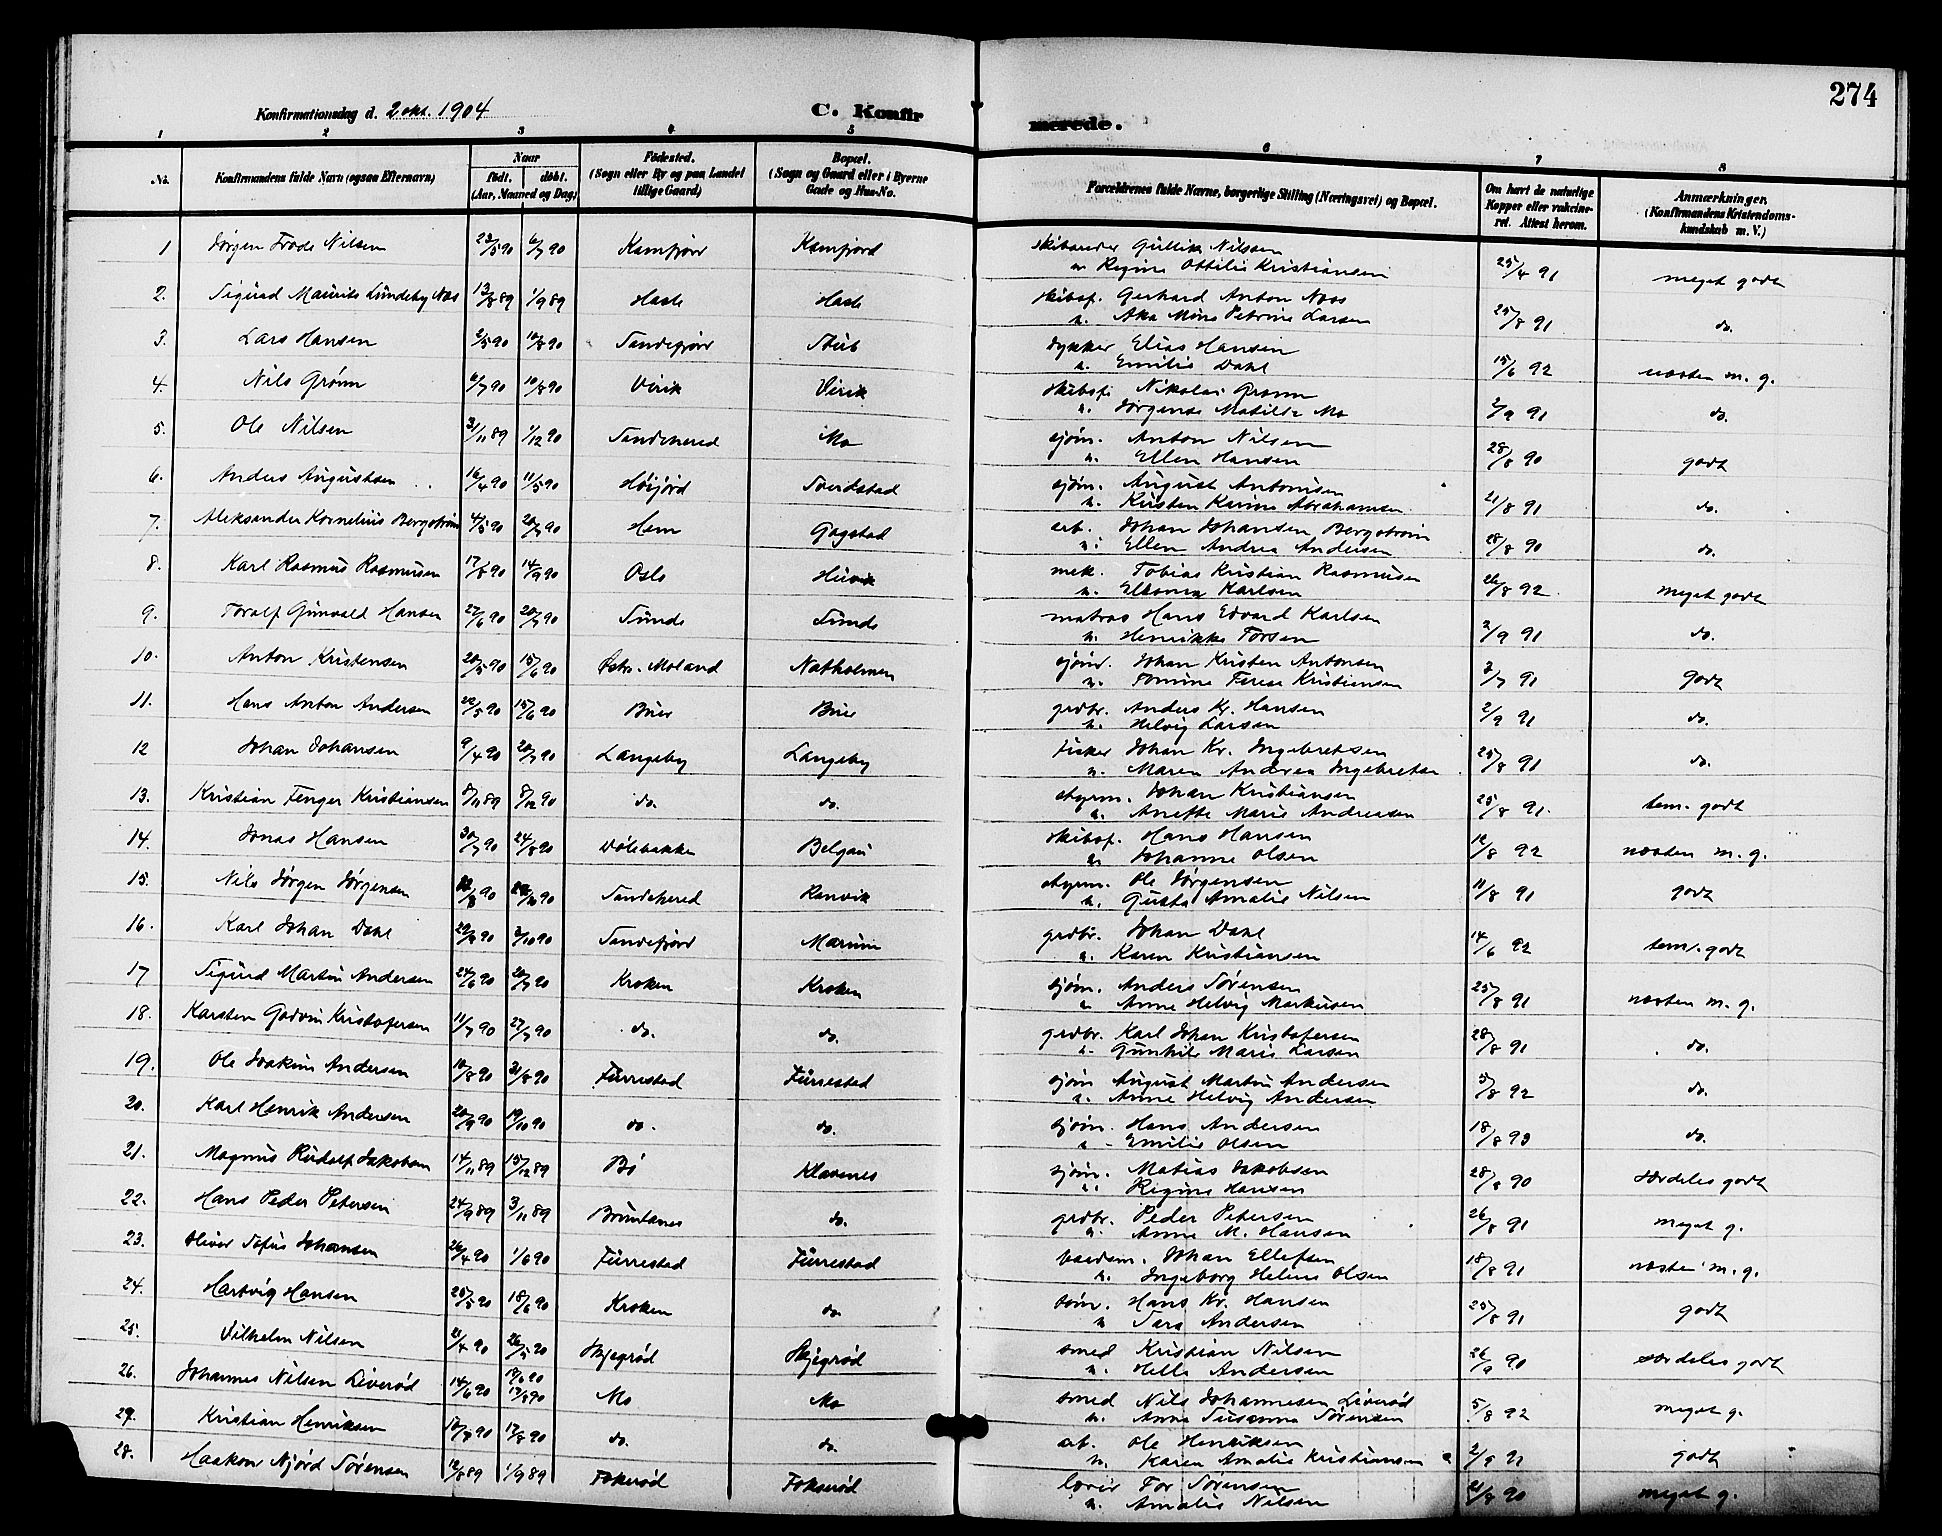 274
Konfirmationsdag d. 2 okt. 1904 C. Konfir
merede.
1 2 3 4 5 6 7 8
No. Konfirmandens fulde Navn (ogsaa Efternavn) Naar født. døbt. (Aar, Maaned og Dag) Fødested. (Sogn eller By og paa Landet tillige Gaard) Bopæl. (Sogn og Gaard eller i Byerne Gade og Hus-No. Forældrenes fulde Navne, borgerlige Stilling (Næringsvei) og Bopæl. Om havt de naturlige Kopper eller vakcineret. Attest herom. Anmærkninger. (Konfirmandens Kristendomskundskab m. V.)
1 Jørgen Frode Nilsen 23/5 90 6/7 90 Kamfjord Kamfjord Gullik Nilsen
u. Regine Ottilie Kristiansen 25/4 91 meget godt
2. Sigurd Maurits Lundeby Næs 13/8 89 1/9 89 Hasle Hasle skibsf. Gerhard Anton Næs
u. Aka Mine Petrine Larsen 25/8 91 do.
3. Lars Hansen 2/5 90 10/8 90 Sandefjord Stub dykker Elias Hansen
u. Emilie Dahl 15/6 92 næsten m. g.
4. Nils Grønn 6/7 90 10/8 90 Virik Virik skibsf. Nikolai Grønn
u. Jørgense Matilde Mo 2/9 91 do.
5. Ole Nilsen 21/11 89 1/12 90 Sandehered Mo sjøm. Anton Nilsen
u. Ellen Hansen 28/8 90 godt
6. Anders Augustsen 16/4 90 11/5 90 Høijord Tveidstad sjøm. August Antonsen
u. Kristen Karine Abrahamsen 21/8 91 do.
7. Aleksander Kornelius Bergstrøm 4/5 90 20/7 90 Hem Gogstad arb. Johan Johansen Bergstrøm
u. Ellen Andrea Andersen 28/8 90 do.
8. Karl Rasmus Rasmusen 17/8 90 14/9 90 Oslo Huvik mek. Tobias Kristian Rasmusen
u. Karlsen 26/8 92 meget godt
9. Toralf Gunvald Hansen 27/6 90 20/7 90 Sunde Sunde matros Hans Edvard Karlsen
u. Henrikke Torsen 2/9 91 do.
10. Anton Kristensen 20/5 90 15/6 90 Østr. Moland Natholmen sjøm. Johan Kristen Antonsen
u. Tomine Terese Kristiansen 3/7 91 godt
11. Hans Anton Andersen 22/5 90 15/6 90 Buer Buer grdbr. Anders Kr. Hansen
u. Helvig Larsen 2/9 91 do.
12 Johan Johansen 9/4 90 20/7 90 Langeby Langeby fisker Johan Kr. Ingebretsen
u. Maren Andrea Ingebretsen 25/8 91 do.
13. Kristian Fenger Kristiansen 8/11 89 8/12 90 do. do. styrm. Johan Kristiansen
u. Anette Marie Andreasen 25/8 91. tem. godt
14. Jonas Hansen 30/7 90 24/8 90 Dølebakken Belgau skibsf. Hans Hansen
u. Johanne Olsen 12/8 92 næsten m. g.
15. Nils Jørgen Jørgensen 90 90 Sandehered Ranvik styrm. Ole Jørgensen
u. Gusta Amalie Nilsen 11/8 91 godt
16. Karl Johan Dahl 22/8 90 2/10 90 Sandefjord Marum grdbr. Johan Dahl
u. Karen Kristiansen 14/6 92 tem. godt
17 Sigurd Martin Andersen 24/6 90 20/7 90 Kroken Kroken sjøm. Anders Sørensen
u. Anne Helvig Markusen 25/8 91 næsten m. g.
18. Karsten Godvin Kristofersen 11/7 90 27/7 90 do. do. grdbr. Karl Johan Kristofersen
u. Gunhild Marie Larsen 28/8 91 do.
19. Ole Joakim Andersen 10/8 90 31/8 90 Furrestad Furrestad sjøm August Martin Andersen
u. Anne Helvig Andersen 5/8 92 do.
20. Karl Henrik Andersen 20/9 90 19/10 90 do. do. sjøm. Hans Andersen
u. Emilie Olsen 18/8 93 do.
21. Magnus Rudolf Jakobsen 14/11 89 15/12 89 Bø Klavenes sjøm. Matias Jakobsen
u. Regine Hansen 28/8 90 særdeles godt
22. Hans Peder Petersen 24/9 89 3/11 89 Bruntanes do. grdbr. Peder Petersen
u. Anne M. Hansen 26/8 91 meget g.
23. Oliver Sofus Johansen 26/4 90 1/6 90 Furrestad Furrestad Johan Ellefsen
u. Ingeborg Helene Olsen 18/8 91 næsten m. g.
24. Hartvig Hansen 25/5 90 18/6 90 Kroken do tøm. Hans Kr. Hansen
u Sara Andersen 25/8 91 godt
25. Vilhelm Nilsen 21/4 90 26/5 90 Skjegrød Skjegrød smed Kristian Nilsen
u. Helle Andersen 26/9 90 særdeles godt
26. Johannes Nilsen Liverød 14/6 90 19/6 90 17/8 90 Mo Mo smed Nils Johannesen Liverød
u. Anne Susanna Sørensen 5/8 92 meget g.
27. Kristian Henriksen 10/7 90 17/8 90 do. do. arb. Ole Henriksen
u. Karen Amalie Kristiansen 2/9 91 godt
28. Haakon Njørd Sørensen 12/8 89 1/9 89 Fokserød Fokserød Tor Sørensen
u. Amalie Nilsen 21/8 90 meget g.